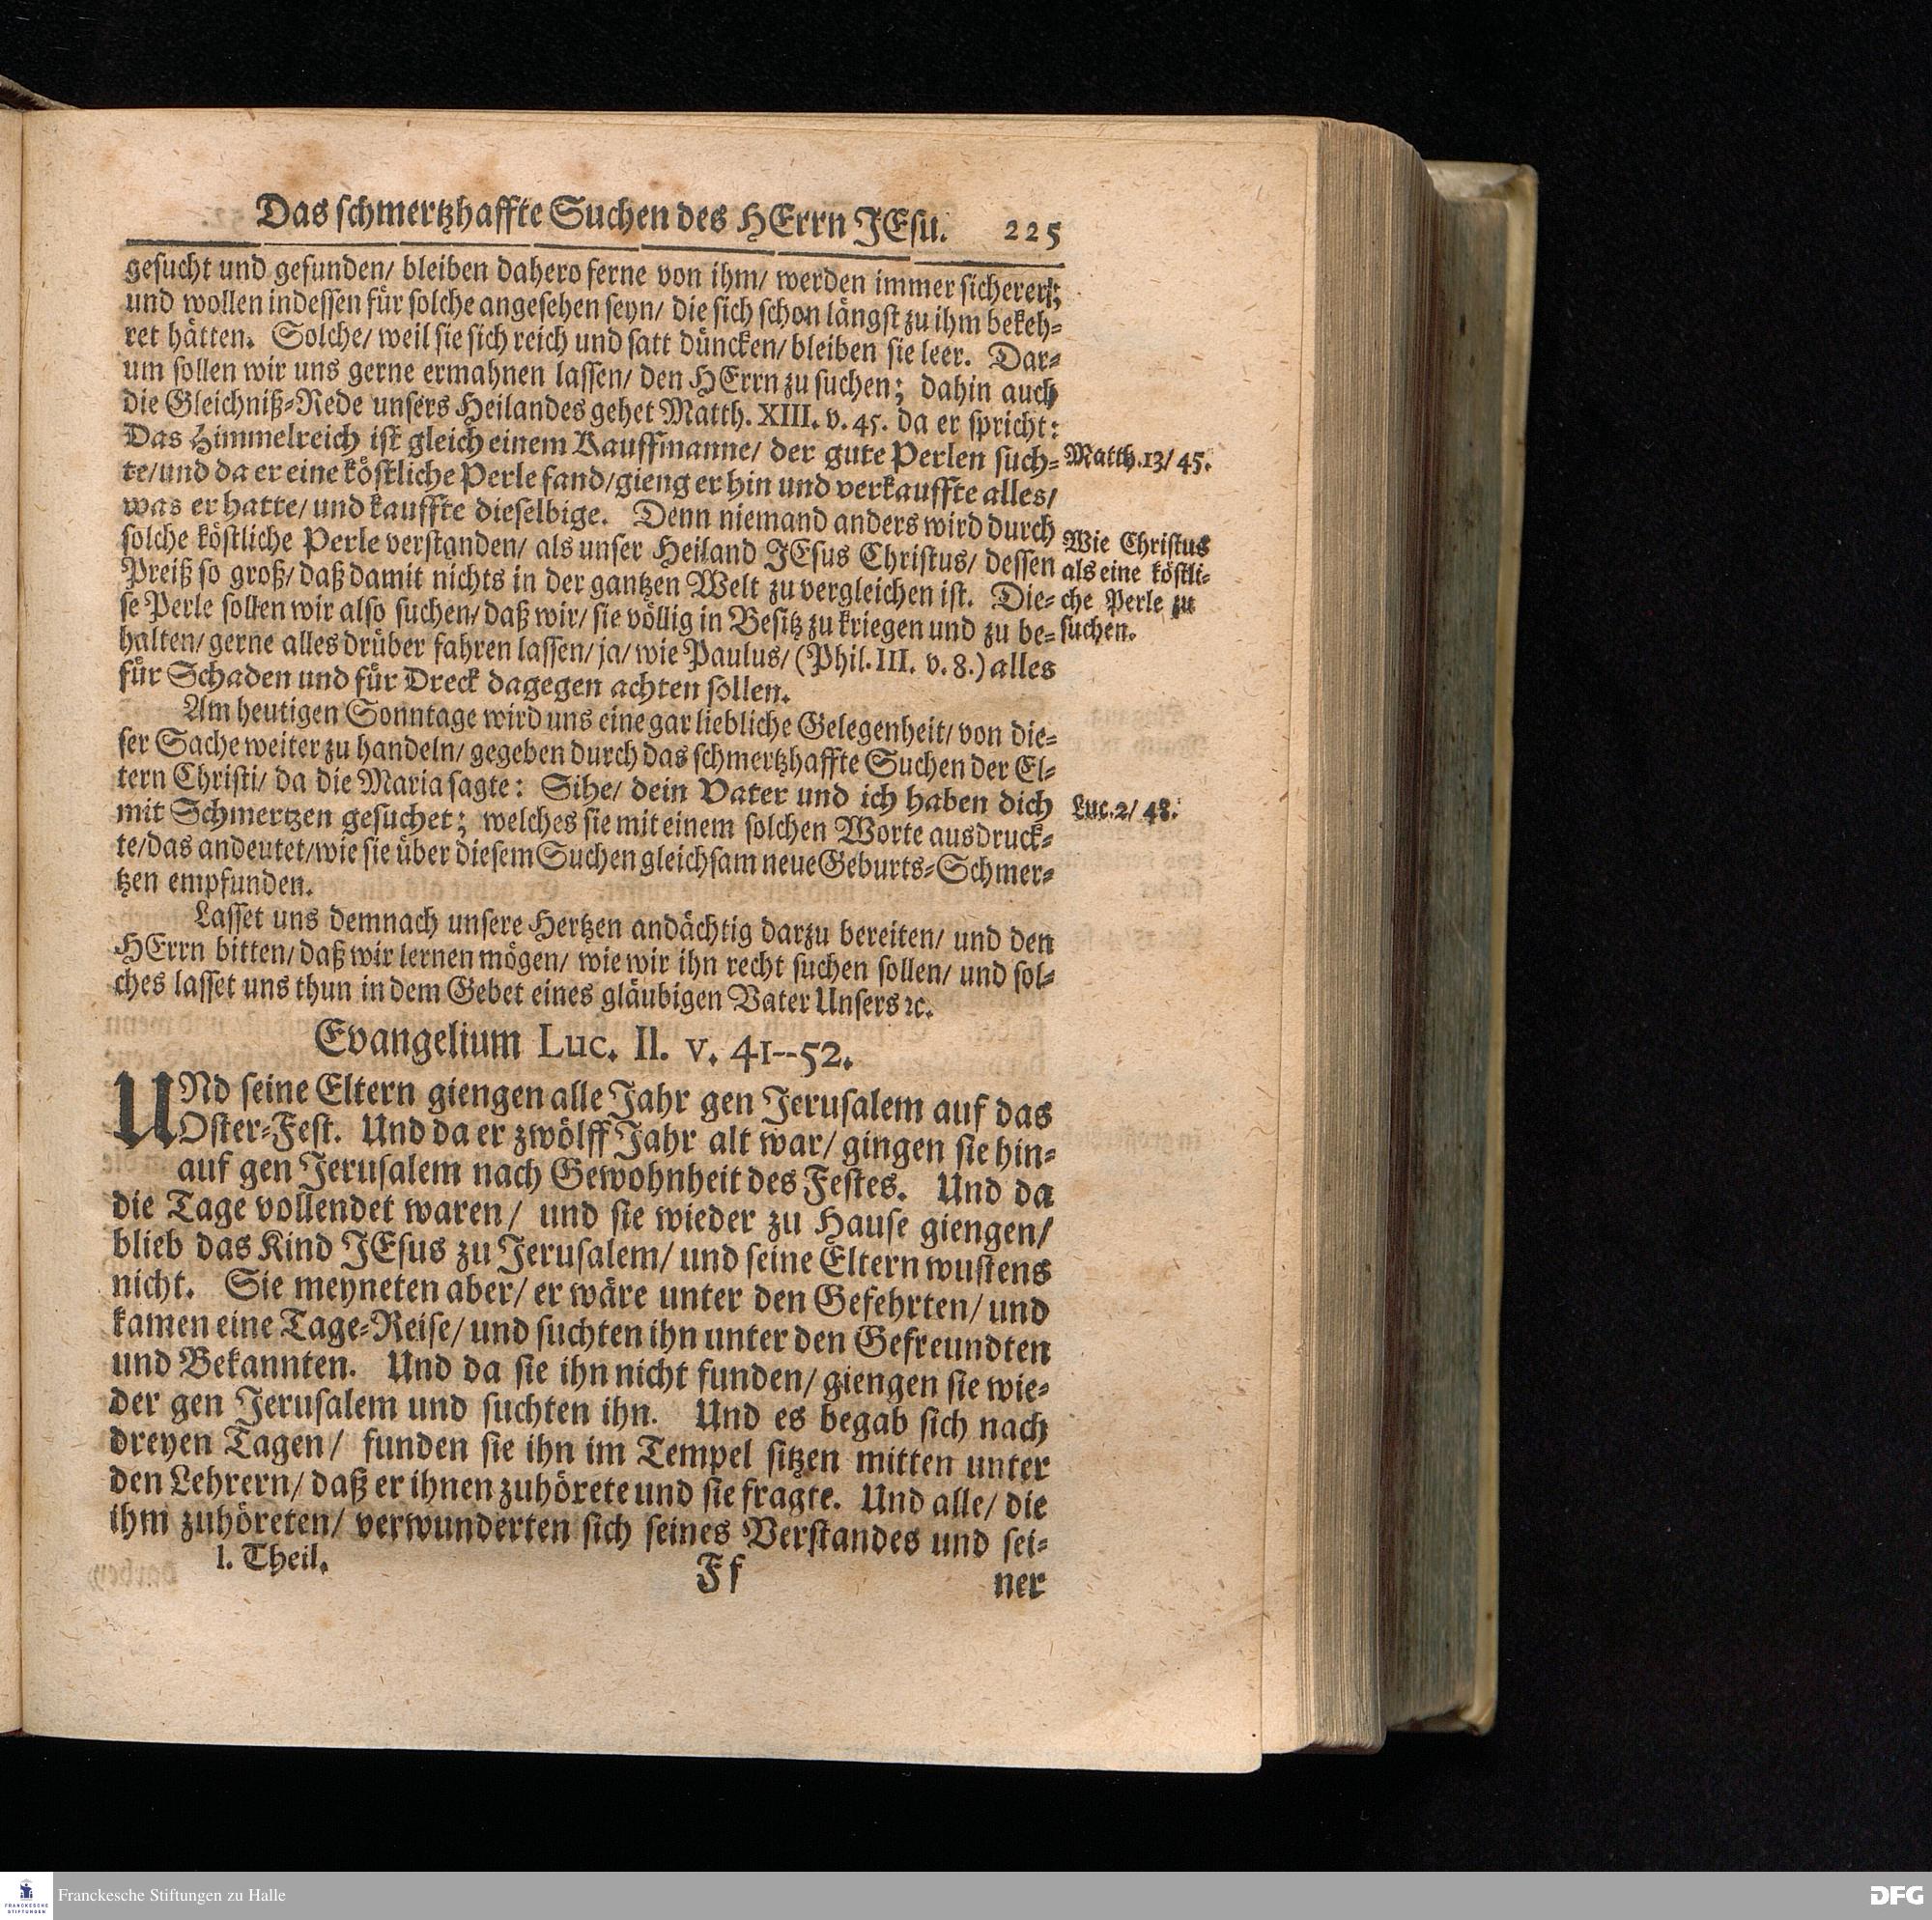 Das schmertzhaffte Suchen des HErrn JEsu. 225
gesucht und gefunden/ bleiben dahero ferne von ihm/ werden immer sicherer;
und wollen indessen für solche angesehen seyn/ die sich schon längst zu ihm bekeh-
ret hätten. Solche/ weil sie sich reich und satt düncken/ bleiben sie leer. Dar-
um sollen wir uns gerne ermahnen lassen/ den HErrn zu suchen; dahin auch
die Gleichniß-Rede unsers Heilandes gehet Matth. XIII. v. 45. da er spricht:
Das Himmelreich ist gleich einem Kauffmanne/ der gute Perlen such-
te/ und da er eine köstliche Perle fand/ gieng er hin und verkauffte alles/
was er hatte/ und kauffte dieselbige. Denn niemand anders wird durch
solche köstliche Perle verstanden/ als unser Heiland JEsus Christus/ dessen
Preiß so groß/ daß damit nichts in der gantzen Welt zu vergleichen ist. Die-
se Perle sollen wir also suchen/ daß wir/ sie völlig in Besitz zu kriegen und zu be-
halten/ gerne alles drüber fahren lassen/ ja/ wie Paulus/ (Phil. III. v. 8.) alles
für Schaden und für Dreck dagegen achten sollen.
Matth. 13/ 45.
Wie Christus
als eine köstli-
che Perle zu
suchen.
Am heutigen Sonntage wird uns eine gar liebliche Gelegenheit/ von die-
ser Sache weiter zu handeln/ gegeben durch das schmertzhaffte Suchen der El-
tern Christi/ da die Maria sagte: Sihe/ dein Vater und ich haben dich
mit Schmertzen gesuchet; welches sie mit einem solchen Worte ausdruck-
te/ das andeutet/ wie sie über diesem Suchen gleichsam neue Geburts-Schmer-
tzen empfunden.
Luc. 2/ 48.
Lasset uns demnach unsere Hertzen andächtig darzu bereiten/ und den
HErrn bitten/ daß wir lernen mögen/ wie wir ihn recht suchen sollen/ und sol-
ches lasset uns thun in dem Gebet eines gläubigen Vater Unsers ꝛc.
Evangelium Luc. II. v. 41--52.
UNd seine Eltern giengen alle Jahr gen Jerusalem auf das
Oster-Fest. Und da er zwölff Jahr alt war/ gingen sie hin-
auf gen Jerusalem nach Gewohnheit des Festes. Und da
die Tage vollendet waren/ und sie wieder zu Hause giengen/
blieb das Kind JEsus zu Jerusalem/ und seine Eltern wustens
nicht. Sie meyneten aber/ er wäre unter den Gefehrten/ und
kamen eine Tage-Reise/ und suchten ihn unter den Gefreundten
und Bekannten. Und da sie ihn nicht funden/ giengen sie wie-
der gen Jerusalem und suchten ihn. Und es begab sich nach
dreyen Tagen/ funden sie ihn im Tempel sitzen mitten unter
den Lehrern/ daß er ihnen zuhörete und sie fragte. Und alle/ die
ihm zuhöreten/ verwunderten sich seines Verstandes und sei-
I. Theil. Ff ner
FRANCKESCHE
STIFTUNGEN
Franckesche Stiftungen zu Halle
DFG